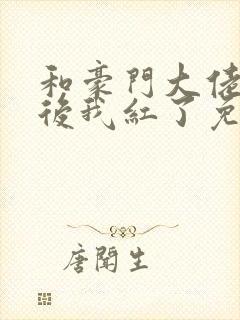 和豪門大佬
後我紅了免
唐聞生